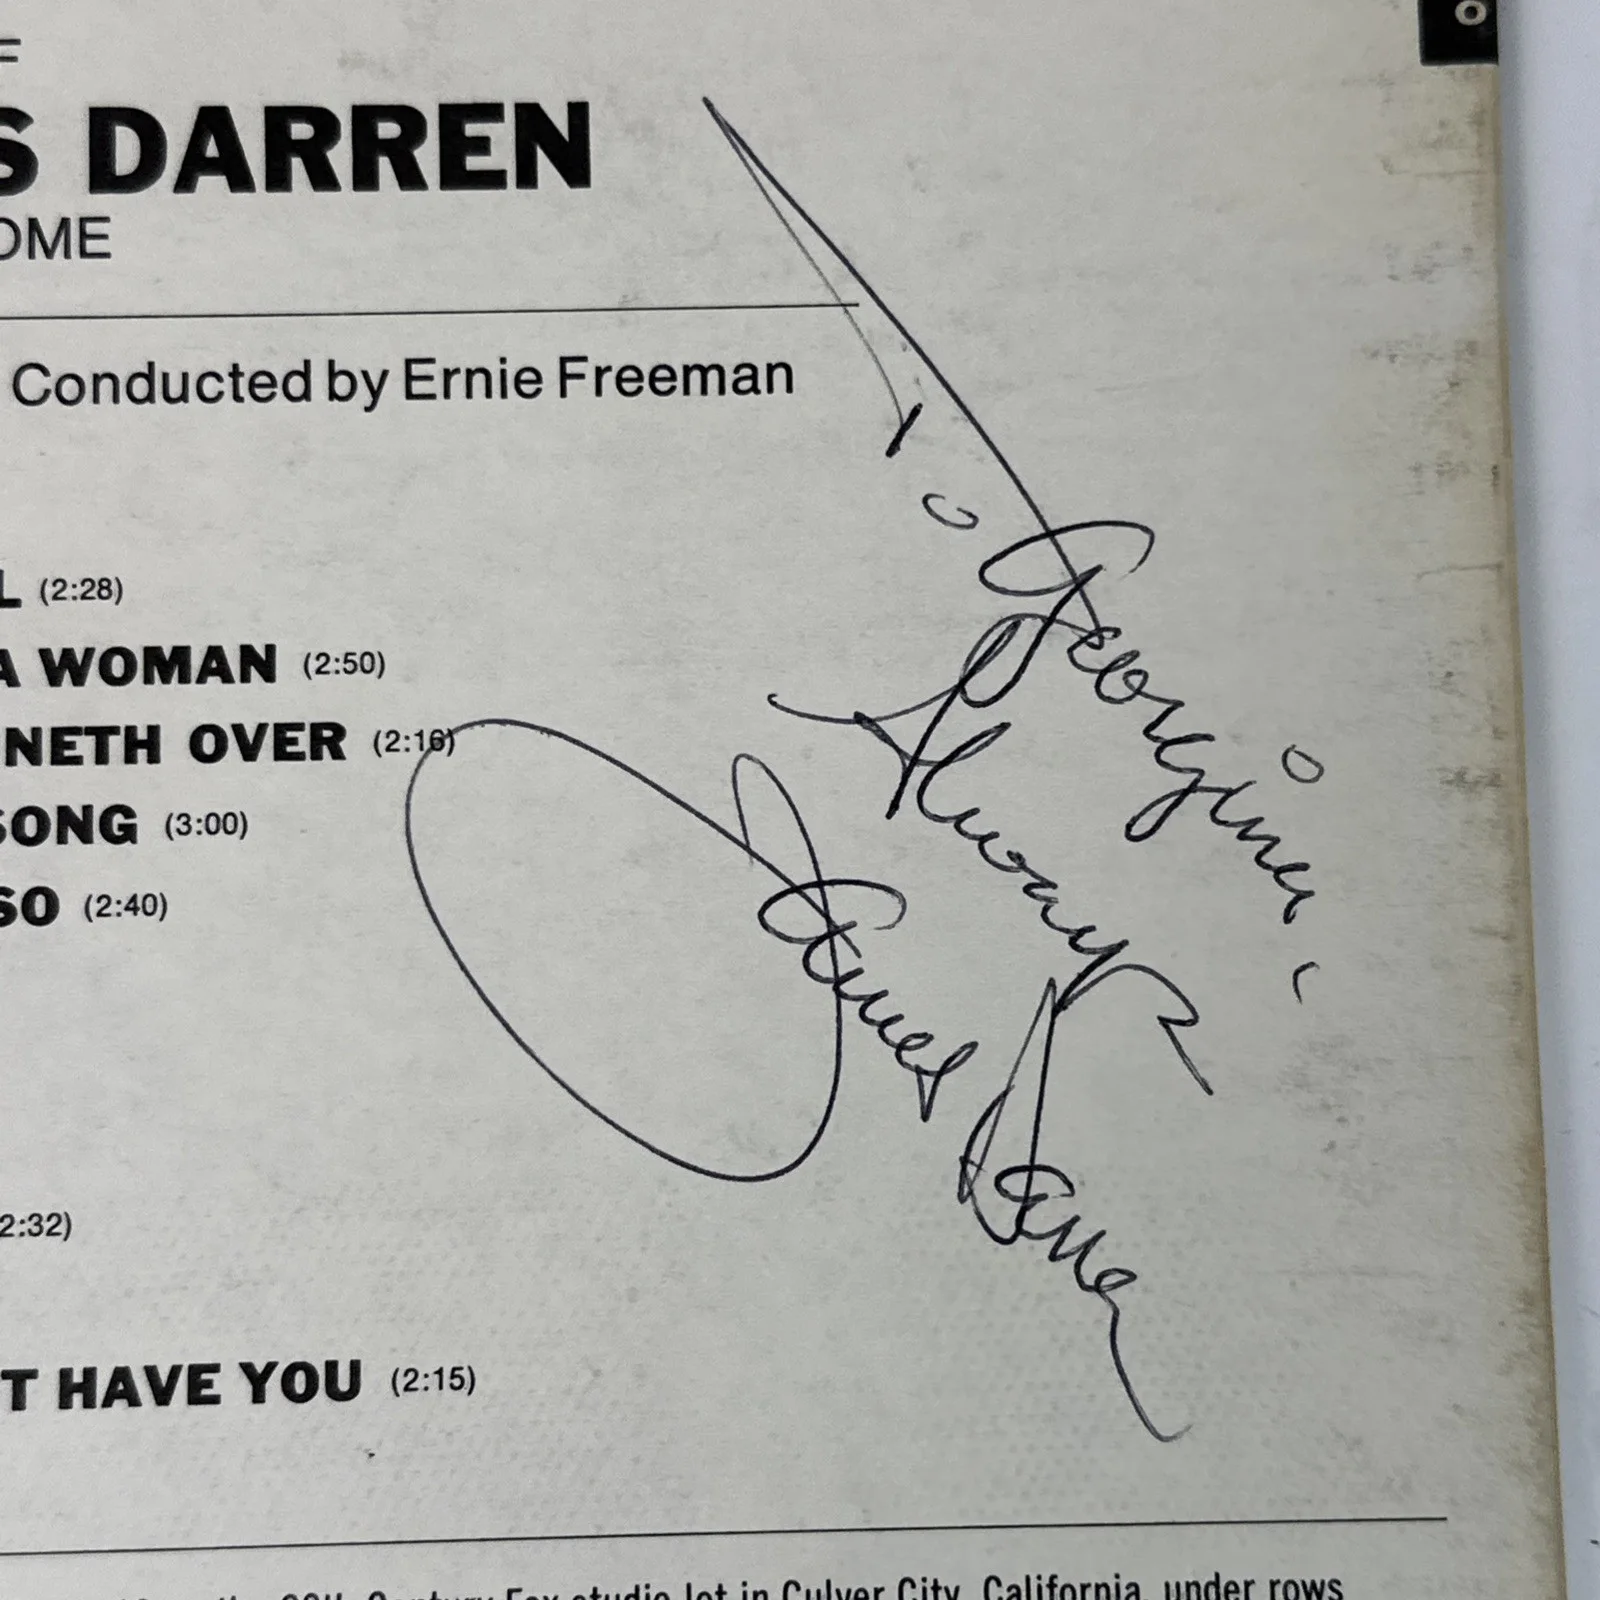 S DARREN
OME
Conducted by Ernie Freeman
L (2:28)
A WOMAN (2:50)
NETH OVER (2:16)
SONG (3:00)
SO (2:40)
2:32)
T HAVE YOU (2:15)
To Georgina,
Always
James Darren
20th Century Fox studio lot in Culver City, California, under rows